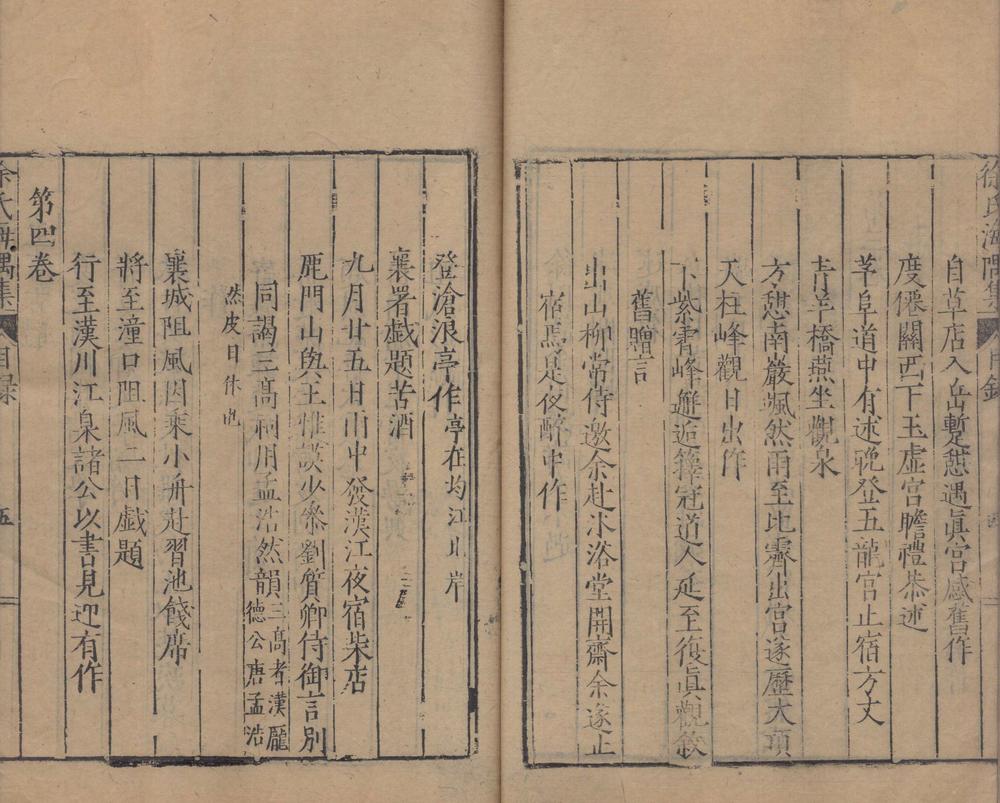 徐氏海隅集 目錄
自草店入岳蹔憇遇眞宮感舊作
度僊關西下玉虛宮瞻禮恭述
芊阜道中有述晚登五龍宮止宿方丈
青羊橋燕坐觀泉
方憇南巖颯然雨至比霽出宮遂歷大項
天柱峰觀日出作
下紫霄峰邂逅籜冠道人延至復眞觀敘
舊贈言
出山柳常侍邀余赴沐浴堂開齋余遂止
宿焉是夜醉中作
登滄浪亭作亭在均江北岸
襄署戯題苦酒
九月廿五日雨中發漢江夜宿柴店
鹿門山與王惟謨少叅劉質卿侍御言別
同謁三高祠用孟浩然韻三高者漢龐
德公唐孟浩
然皮日休也
襄城阻風因乘小舟赴習池餞席
將至潼口阻風二日戯題
行至漢川江臬諸公以書見迎有作
第四卷
徐氏海隅集 目錄 五